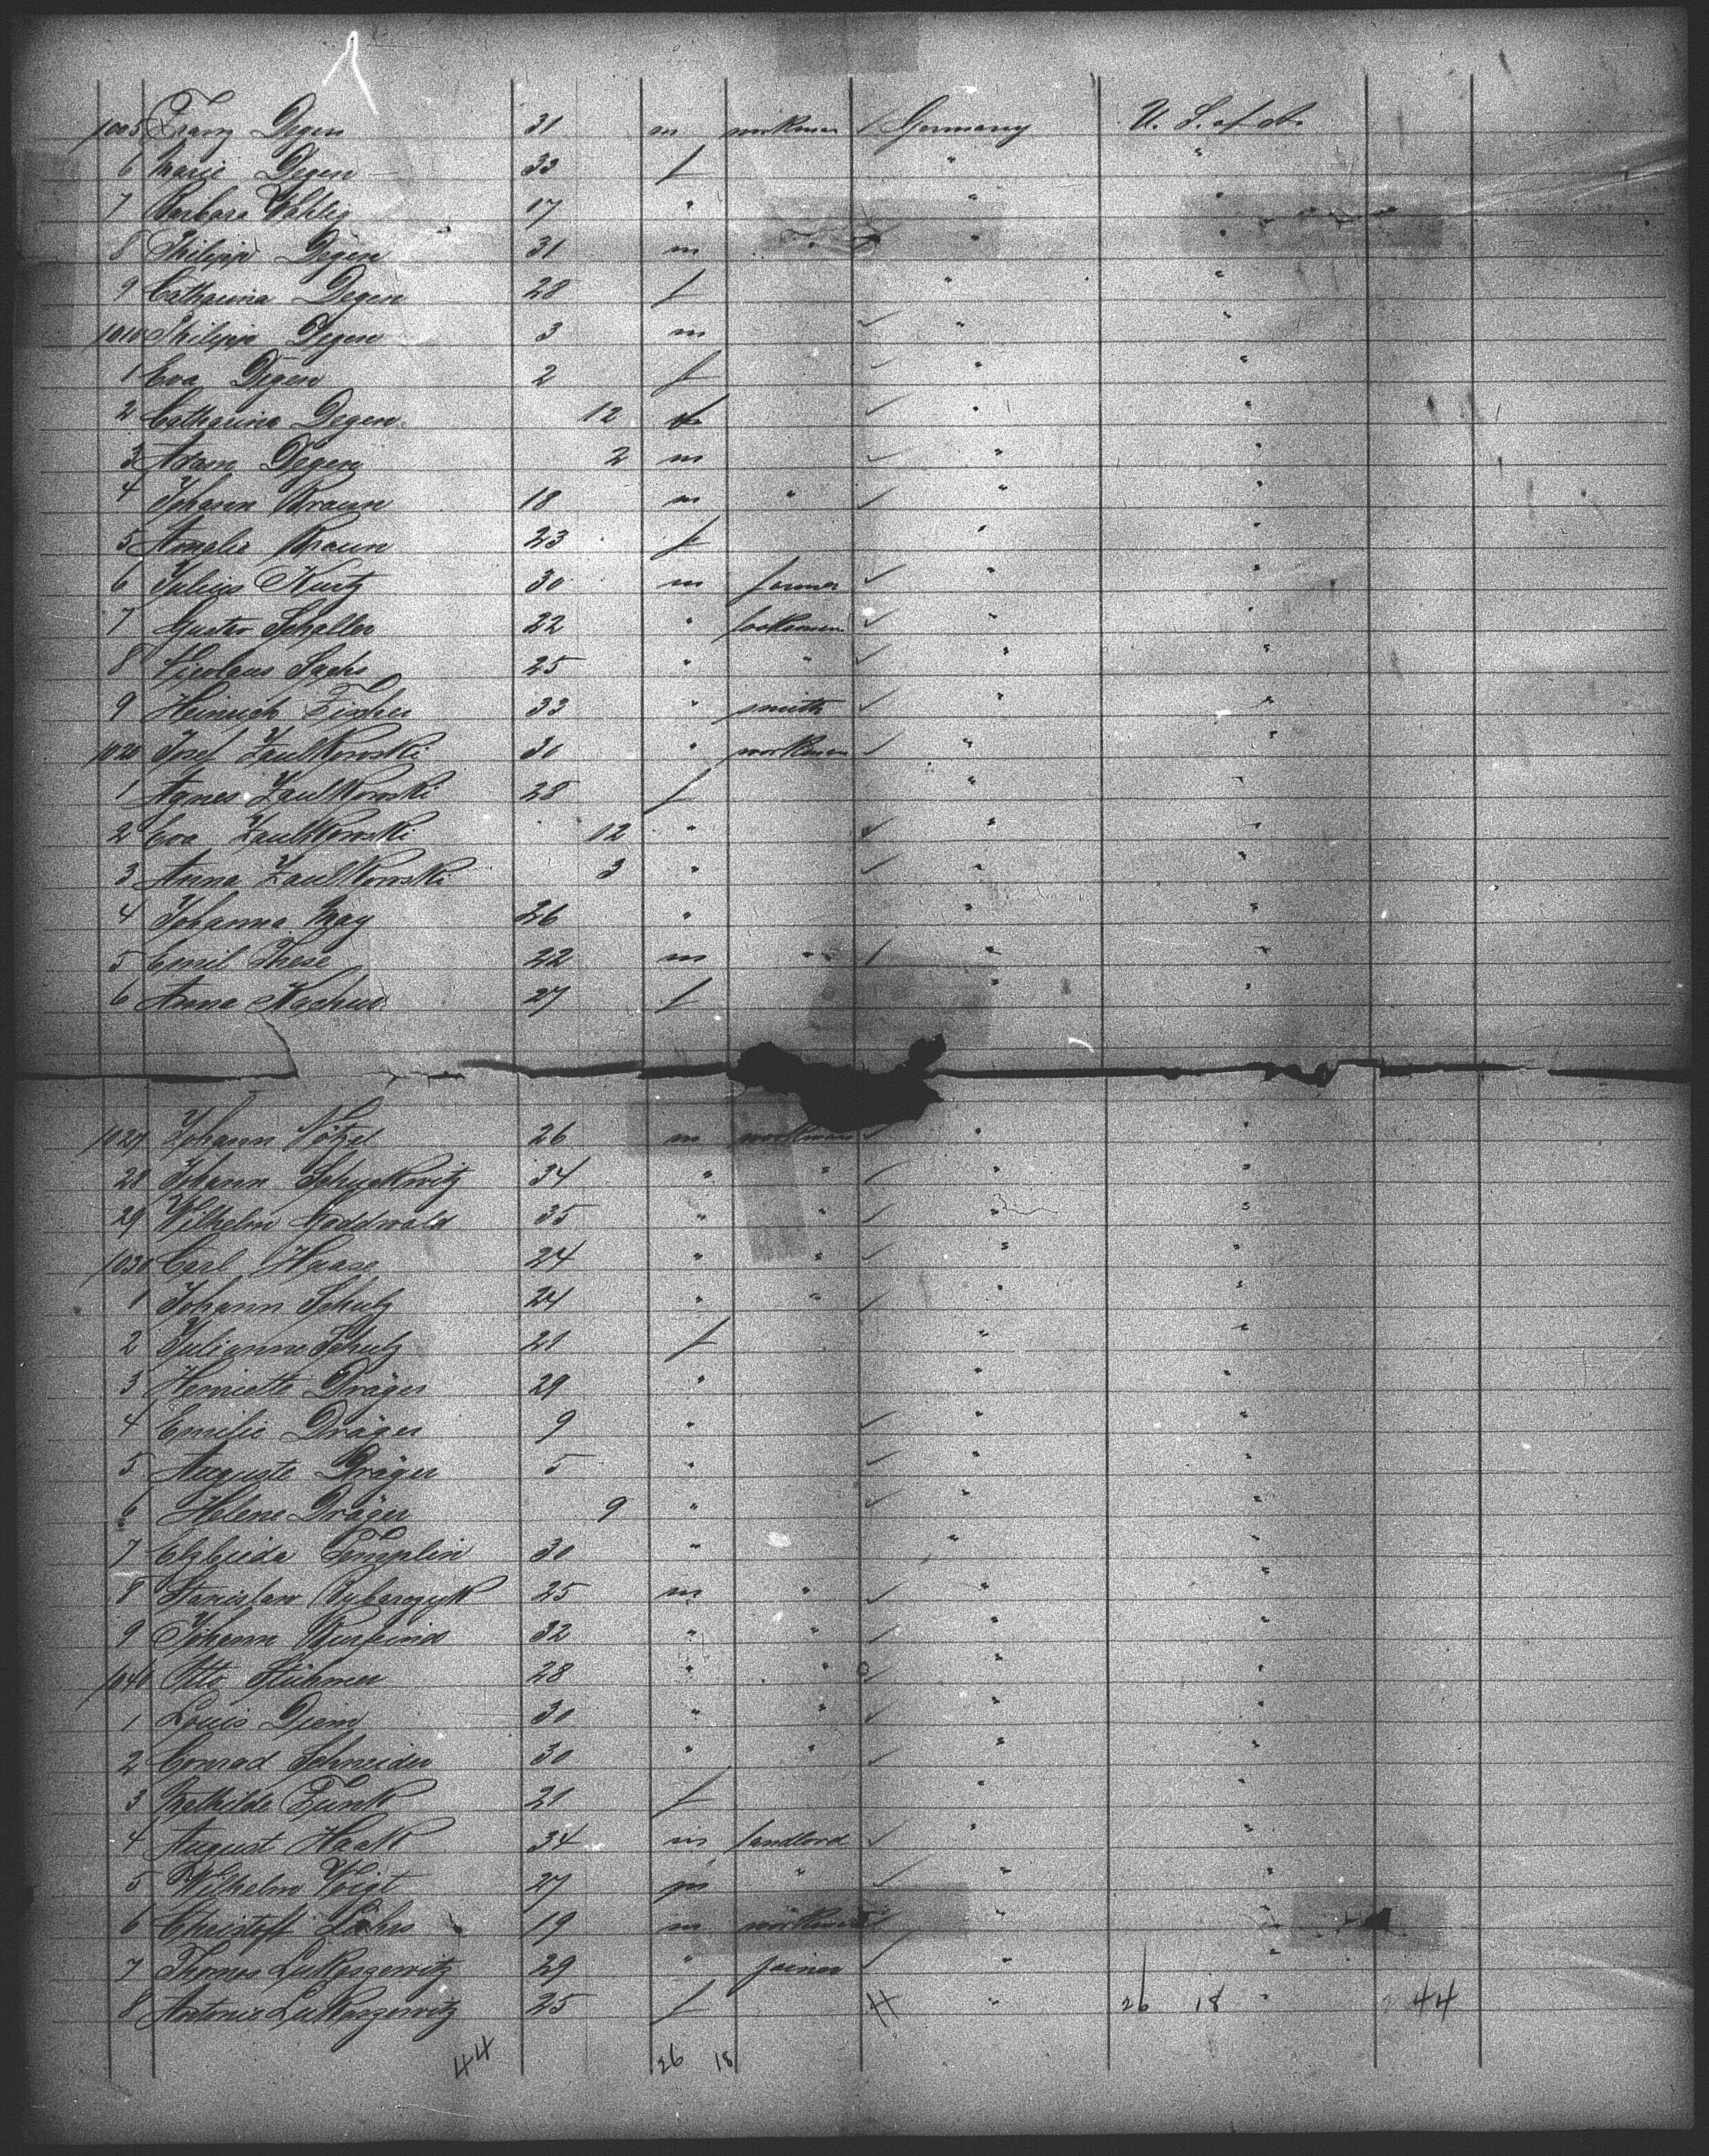 1005 Franz Degen 31 m workman / Germany U. S. of A.
6 Marie Degen 33 f " "
7 Barbara Wahlig 17 " " "
8 Philipp Degen 31 m " "
9 Catharina Degen 28 f " "
1010 Philipp Degen 3 m ✓ " "
1 Eva Degen 2 f ✓ " "
2 Catharina Degen 12 f ✓ " "
3 Adam Degen 2 m ✓ " "
4 Johann Braun 18 m " ✓ " "
5 Amalie Braun 23 f " "
6 Julius Kurtz 30 m farmer ✓ " "
7 Gustav Schaller 22 " ✓ " "
8 Nicolaus Sachs 25 " " ✓ " "
9 Heinrich Fischer 33 " smith ✓ " "
1020 Josef Zaulkowski 30 " workman ✓ " "
1 Agnes Zaulkowski 28 f " "
2 Eva Zaulkowski 12 " ✓ " "
3 Anna Zaulkowski 3 " ✓ " "
4 Johanna May 26 " " "
5 Emil These 22 m " / " "
6 Anna 27 f " "
1027 Johann Nötzel 26 m workman ✓ " "
28 Johann 34 " " ✓ " "
29 Wilhelm 35 " " ✓ " "
1030 Carl Haase 24 " " ✓ " "
1 Johann Schulz 24 " " ✓ " "
2 Julianne Schulz 21 f " "
3 Henriette Dräger 29 " " "
4 Emilie Dräger 9 " ✓ " "
5 Auguste Dräger 5 " ✓ " "
6 Helene Dräger 9 " ✓ " "
7 Elzbieda Templin 30 " " "
8 Stanislaw Rybarczyk 25 m " ✓ " "
9 Johann 32 " " ✓ " "
1040 Otto Stühmer 28 " " " "
1 Louis Diem 30 " " ✓ " "
2 Conrad Schneider 30 " " ✓ " "
3 Mathilde Funk 21 f " "
4 August Haak 34 m landlord ✓ " "
5 Wilhelm Voigt 27 m " ✓ " "
6 Christoff Lührs 19 m workman ✓ " "
7 Thomas Lukaszewitz 29 " joiner ✓ " "
8 Antonie Lukaszewitz 25 f " 26 18 " 44
44 26 18